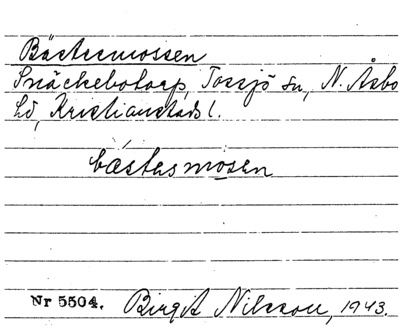 Bästermossen
Snäckebotorp, Tossjö sn, N. Åsbo
hd, Kristianstads l.
bæstasmosen
Nr 5504. Birgit Nilsson, 1943.